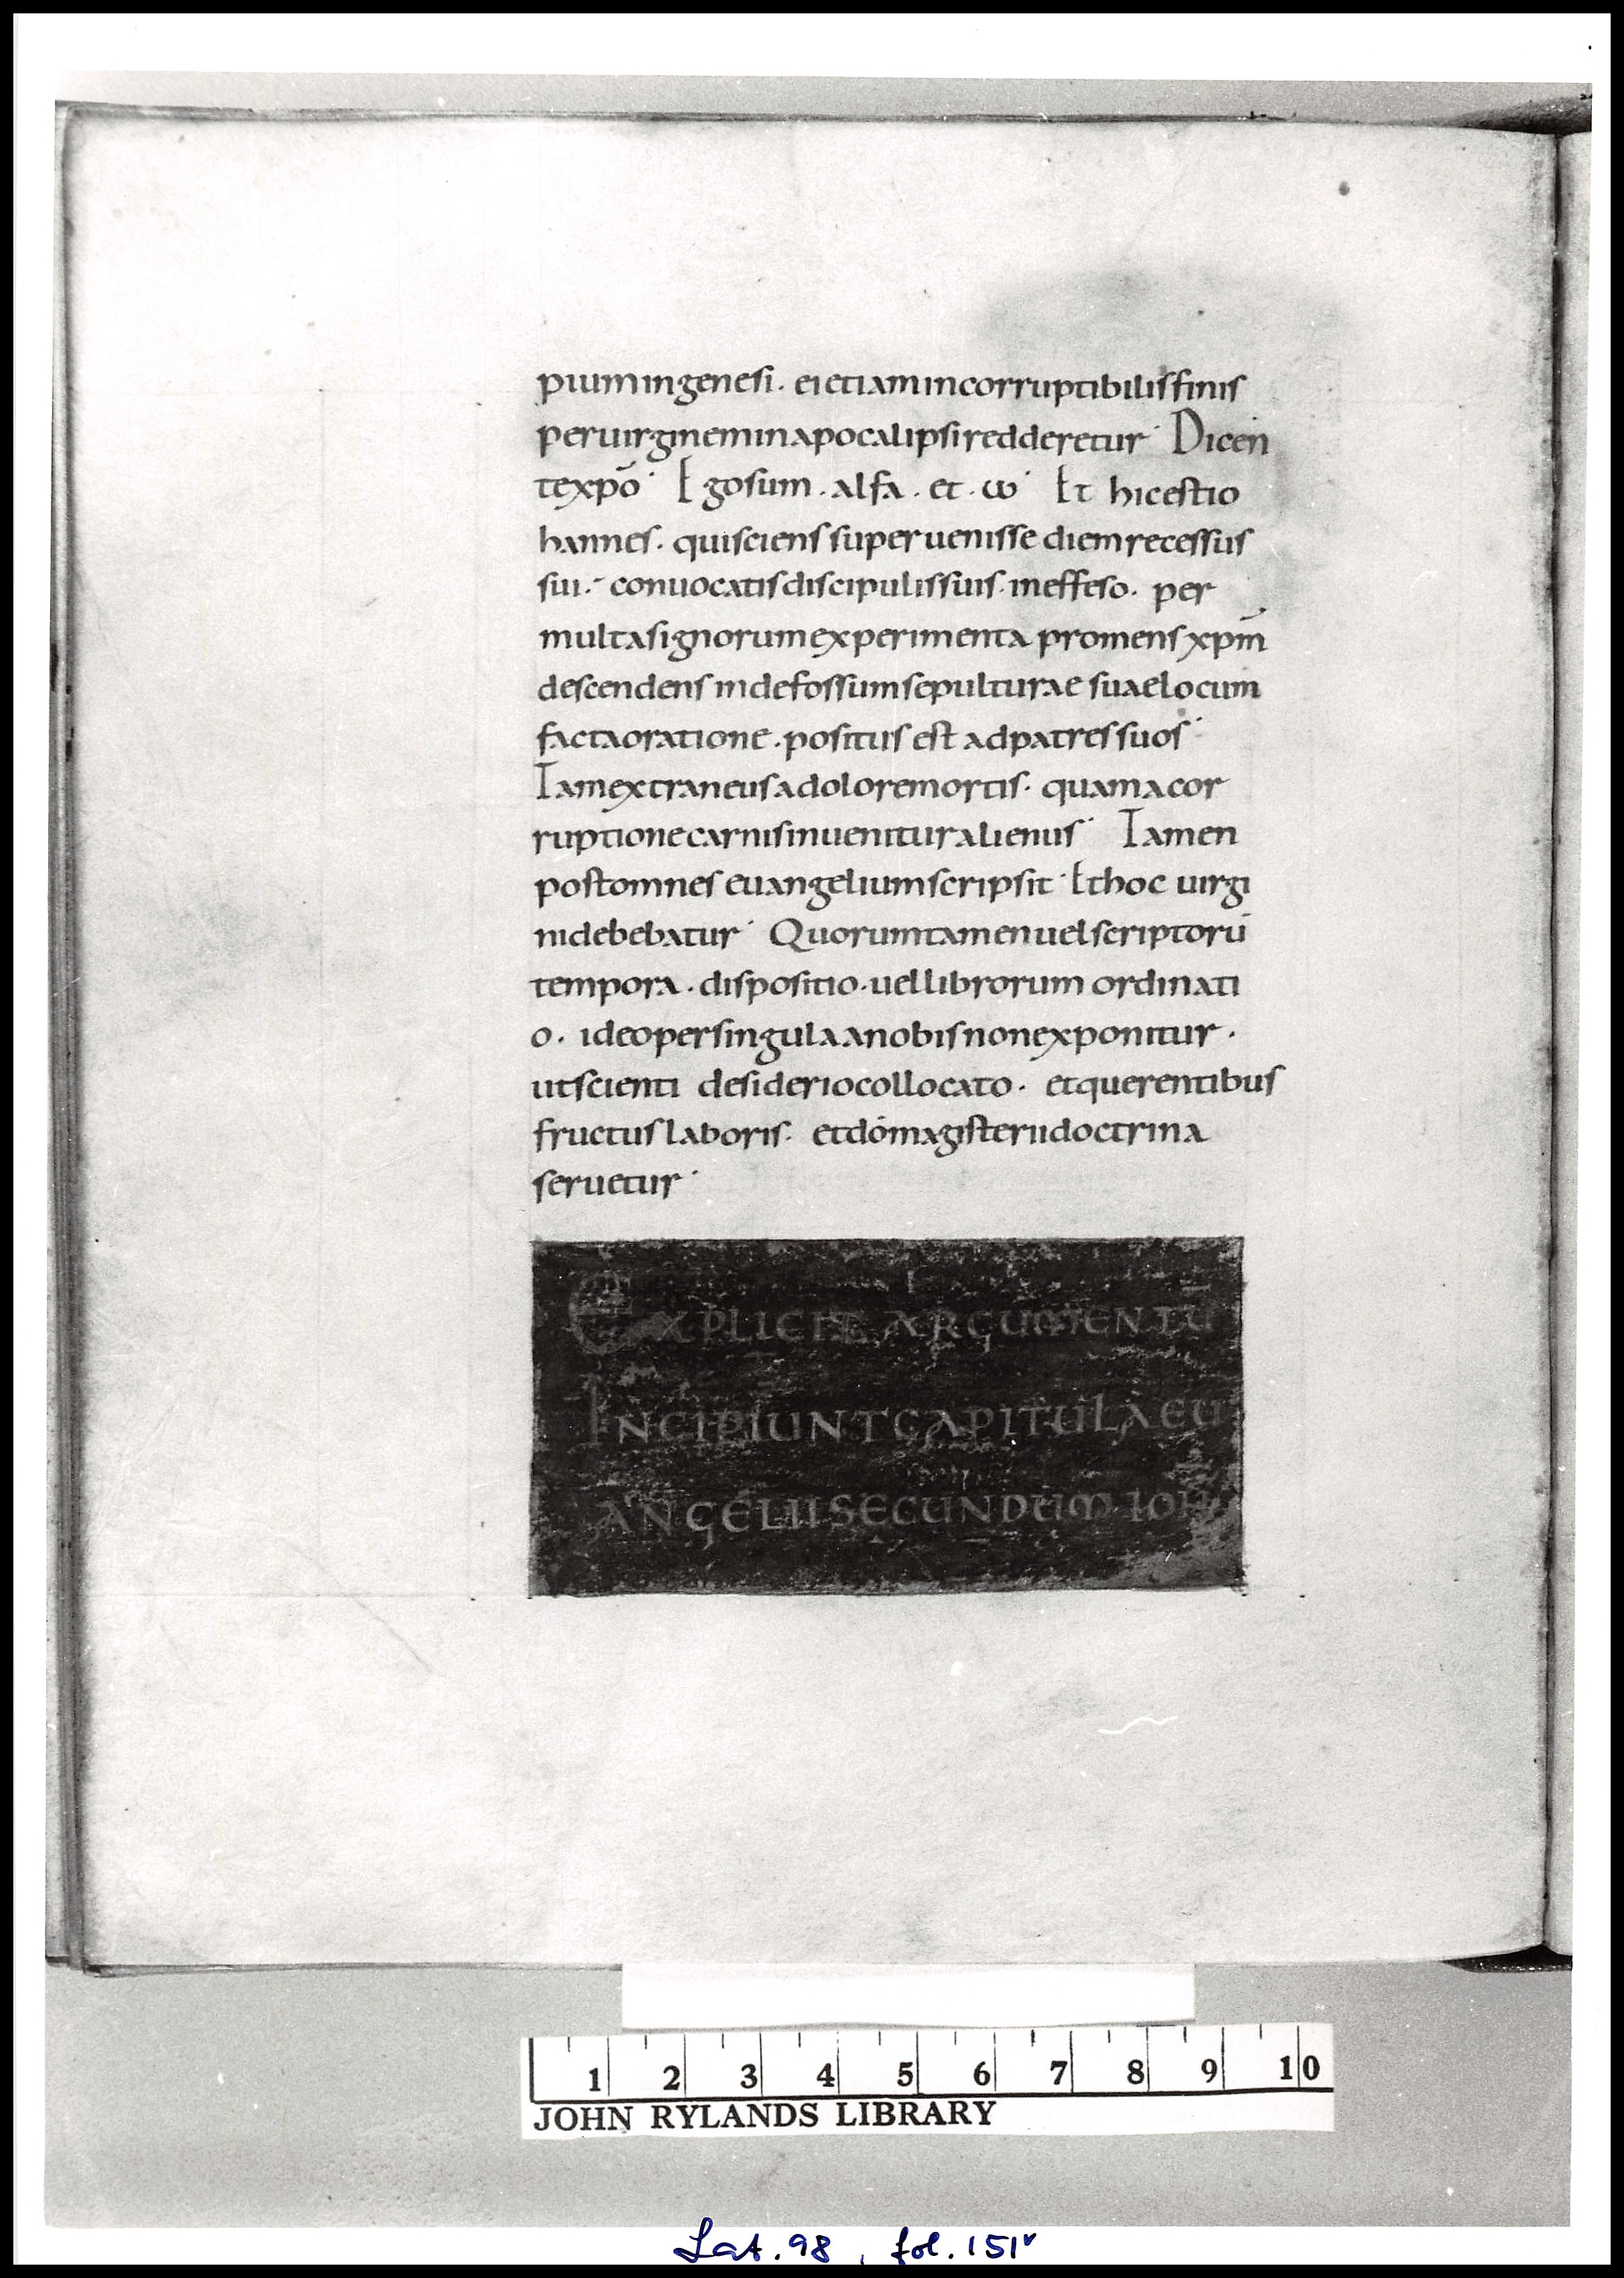 piumingenesi. eietiamincorruptibilisfinis
peruirgineminapocalipsiredderetur. Dicen
texpō. Egosum. alfa. et. ω. Et hicestio
hannes. quisciens superuenisse diemrecessus
sui. conuocatisdiscipulissuis. ineffeso. per
multasignorumexperimenta promens xpm̄
descendens indefossumsepulturae suaelocum
factaoratione. positus est adpatressuos.
Iamextraneusadoloremortis. quamacor
ruptionecarnisinuenituralienus. Tamen
postomnes euangeliumscripsit. Ethoc uirgi
nidebebatur. Quorumtamenuelscriptorū
tempora. dispositio. uellibrorum ordinati
o. ideopersingulaanobisnonexponitur.
utscienti desideriocollocato. etquerentibus
fructuslaboris. etdōmagisteriidoctrina
seruetur.
EXPLICIT ARGUMENTŪ
INCIPIUNTCAPITULAEU
ANGELIISECUNDUM IOH
1 2 3 4 5 6 7 8 9 10
JOHN RYLANDS LIBRARY
Lat. 98, fol. 151v